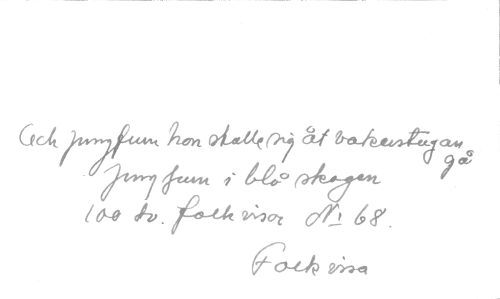 Och jungfrun hon skulle sig åt vakustugan gå
Jungfrun i blå skogen
100 sv. folkvisor No 68.
Folkvisa